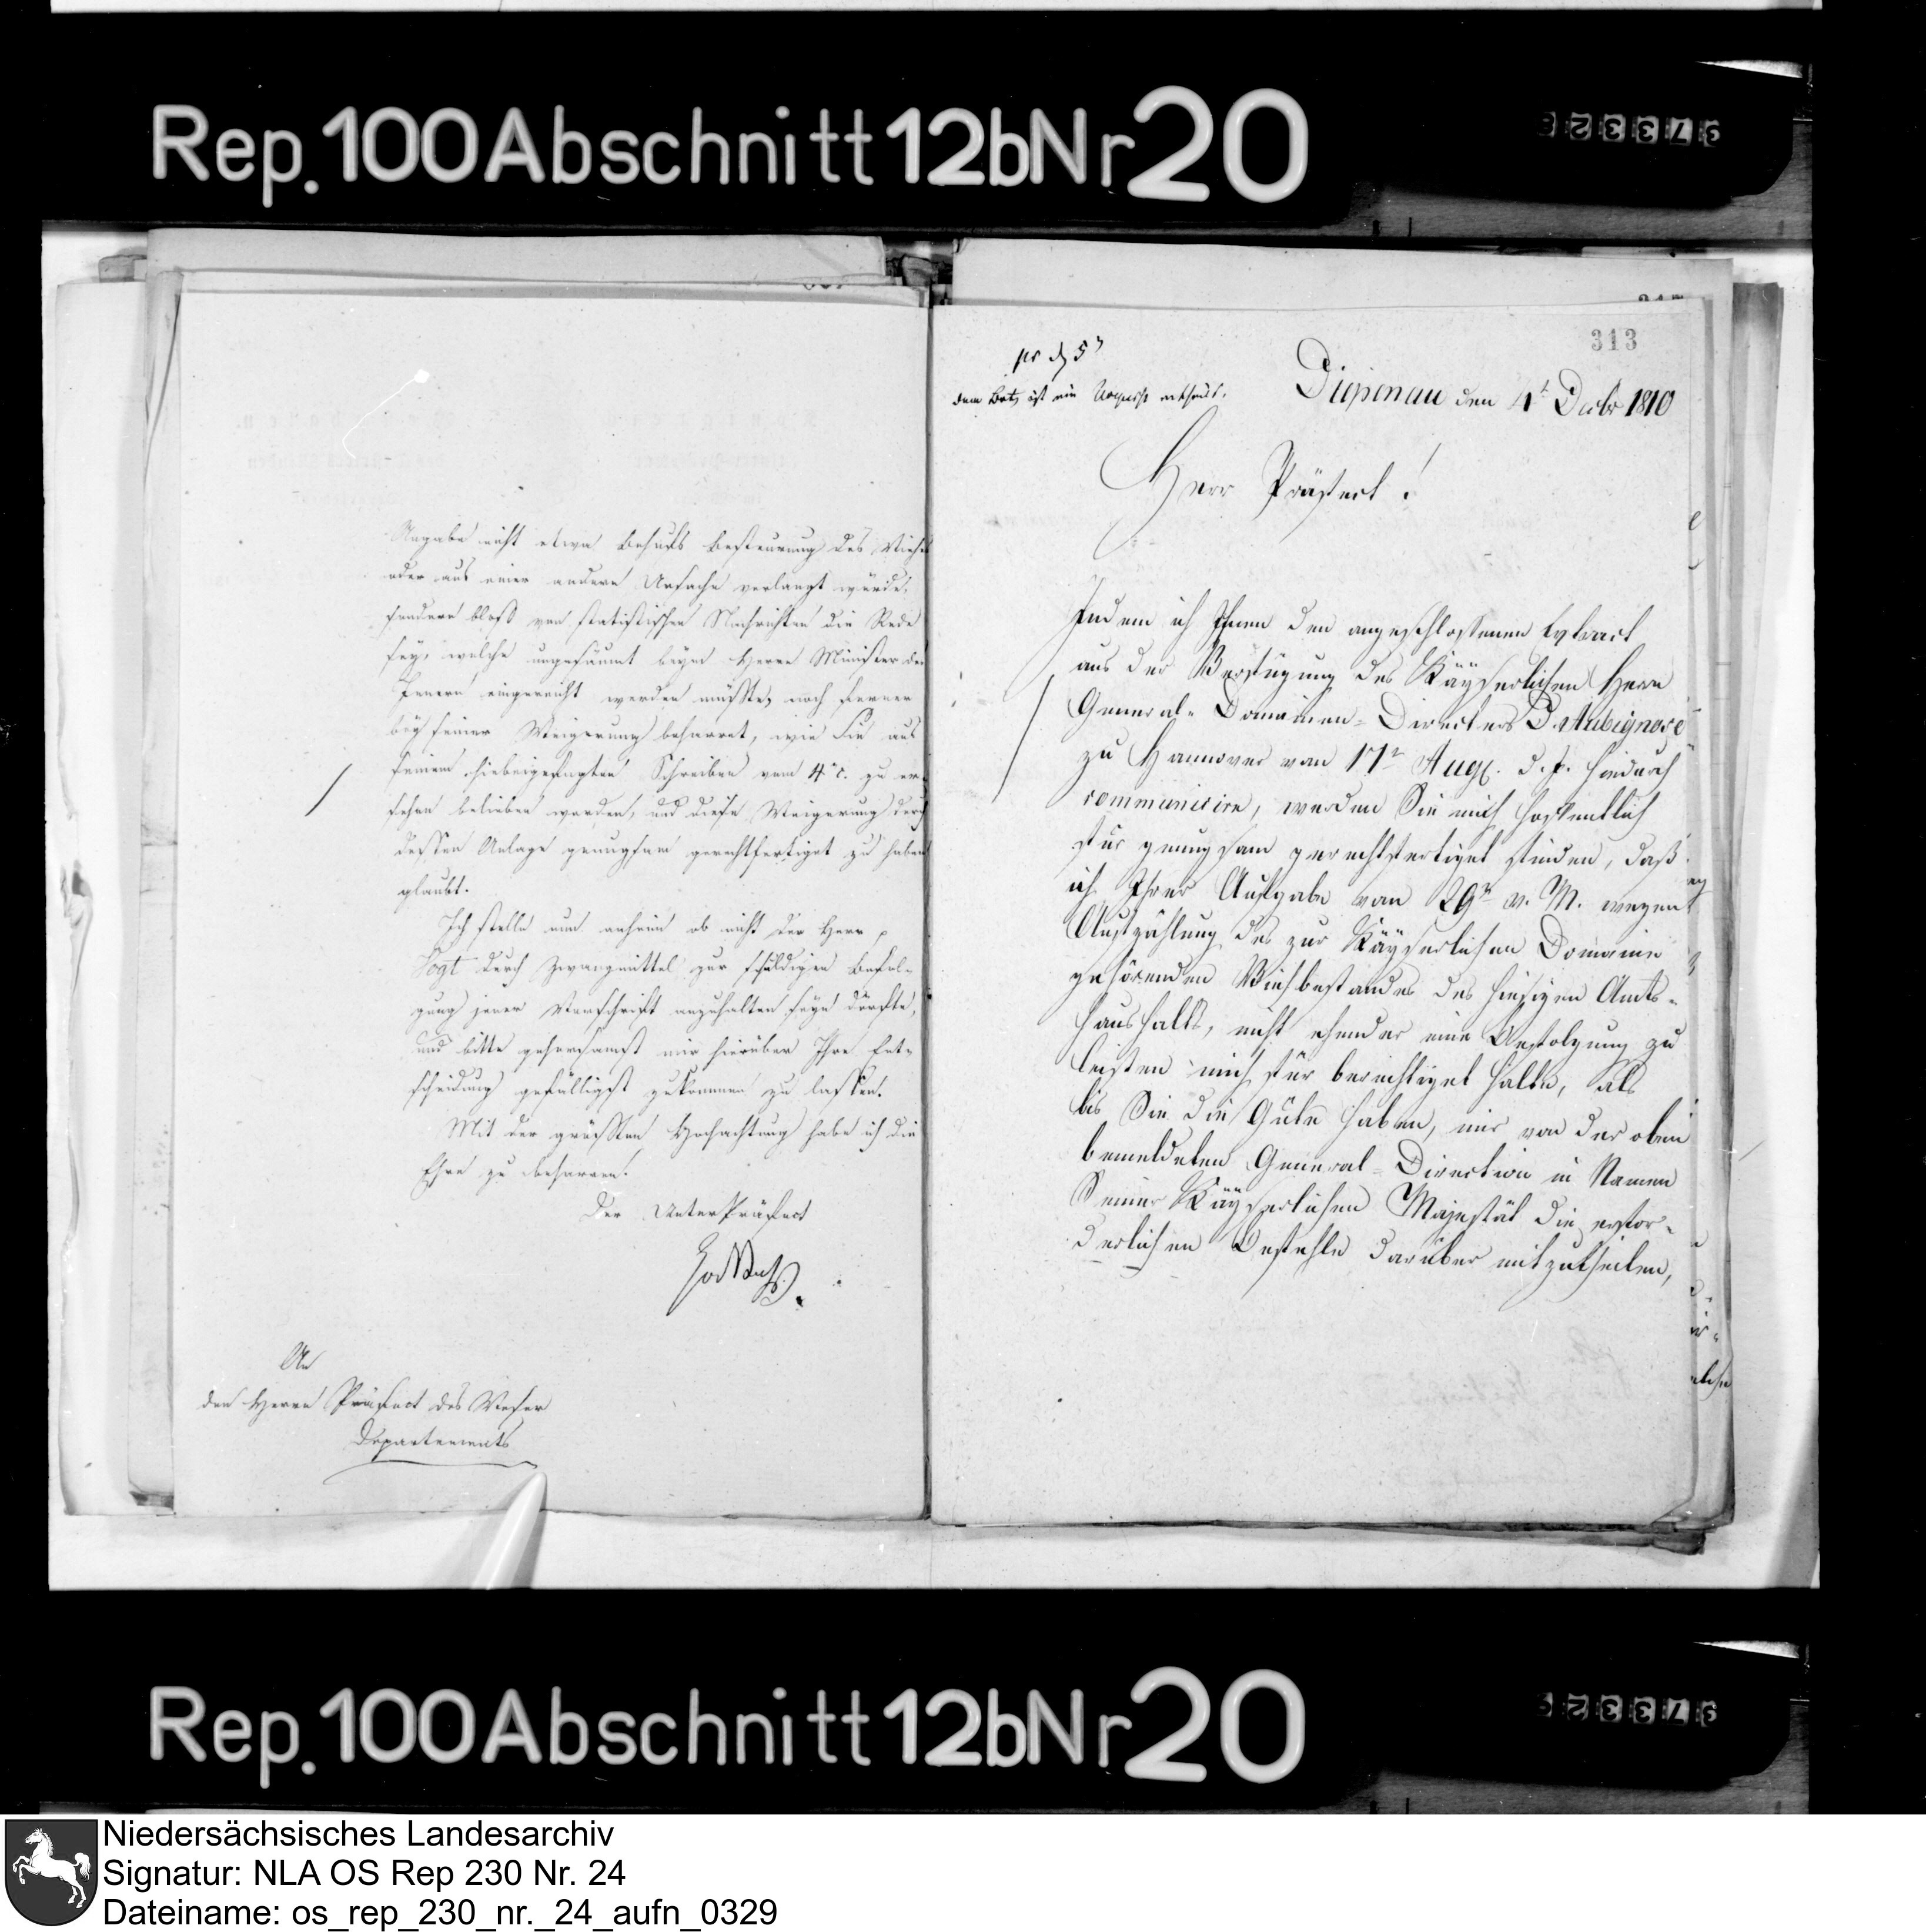 Rep. 100 Abschnitt 12b Nr 20
Angabe nicht etwa behufs Besteurung des Viehes
oder aus einer andern Ursache verlangt würde,
sondern bloß von statistischen Nachrichten die Rede
sey, welche ungesäumt beym Herrn Minister des
Innern eingereicht werden müßten, noch ferner
bey seiner Weigerung beharret, wie Sie aus
seinem hiebeigefügten Schreiben vom 4ten zu er-
sehen belieben werden, und diese Weigerung durch
dessen Anlage genugsam gerechtfertiget zu haben
glaubt.
Ich stelle nun anheim ob nicht der Herr
Vogt durch Zwangmittel zur schuldigen Befol-
gung jener Vorschrift anzuhalten seyn dürfte,
und bitte gehorsamst mir hierüber Ihre Ent-
scheidung gefälligst zukommen zu lassen.
Mit der größten Hochachtung habe ich die
Ehre zu beharren.
Der UnterPräfect
An
den Herrn Präfect des Weser
Departements
313
pr d 5
Diepenau den 4t Decbr 1810
Herr Präfect!
Indem ich Ihnen den angeschlossenen Extract
aus der Verfügung des Kayserlichen Herrn
General-Domainen-Directors D'Aubignosc
zu Hannover vom 17t Aug. d. J. hiedurch
communicire, werden Sie mich hoffentlich
für genugsam gerechtfertiget finden, daß
ich Ihrer Aufgabe vom 29n v. M. wegen
Aufzählung des zur Kayserlichen Domaine
gehörenden Viehbestandes des hiesigen Amts-
haushalts, nicht ehender eine Befolgung zu
leisten mich für berechtiget halte, als
bis Sie die Güte haben, mir von der oben
bemeldeten General-Direction in Namen
Seiner Kayserlichen Majestät die erfor-
derlichen Befehle darüber mitzutheilen,
Rep. 100 Abschnitt 12b Nr 20
Niedersächsisches Landesarchiv
Signatur: NLA OS Rep 230 Nr. 24
Dateiname: os_rep_230_nr._24_aufn_0329